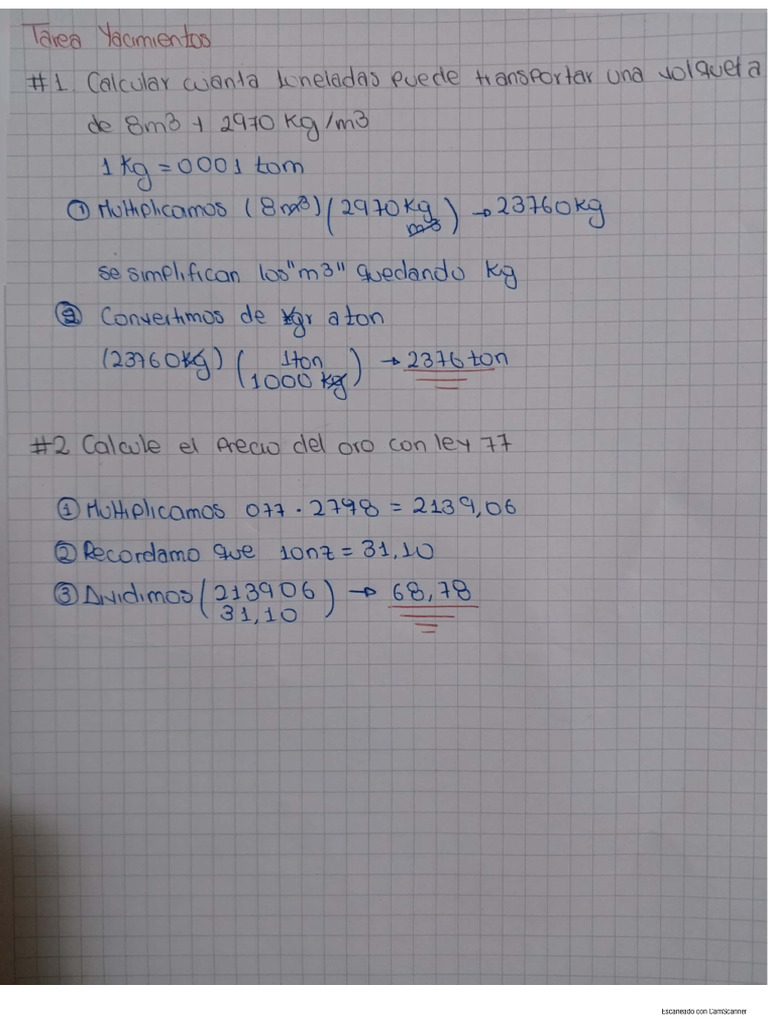 Tarea Yacimientos
#1 Calcular cuanta toneladas puede transportar una volqueta
de 8m3 + 2970 kg/m3
1 Kg = 0001 tom
① Multiplicamos (8m3) (2970 kg → 23760kg
m3)
se simplifican los "m3" quedando kg
② Convertimos de kgr a ton
(23760kg) (1ton → 2376 ton
1000 kg)
#2 Calcule el Precio del oro con ley 77
① Multiplicamos 077 · 2798 = 2139,06
② Recordamo que 1onz = 31,10
③ Dividimos (213906 → 68,78
31,10)
Escaneado con CamScanner